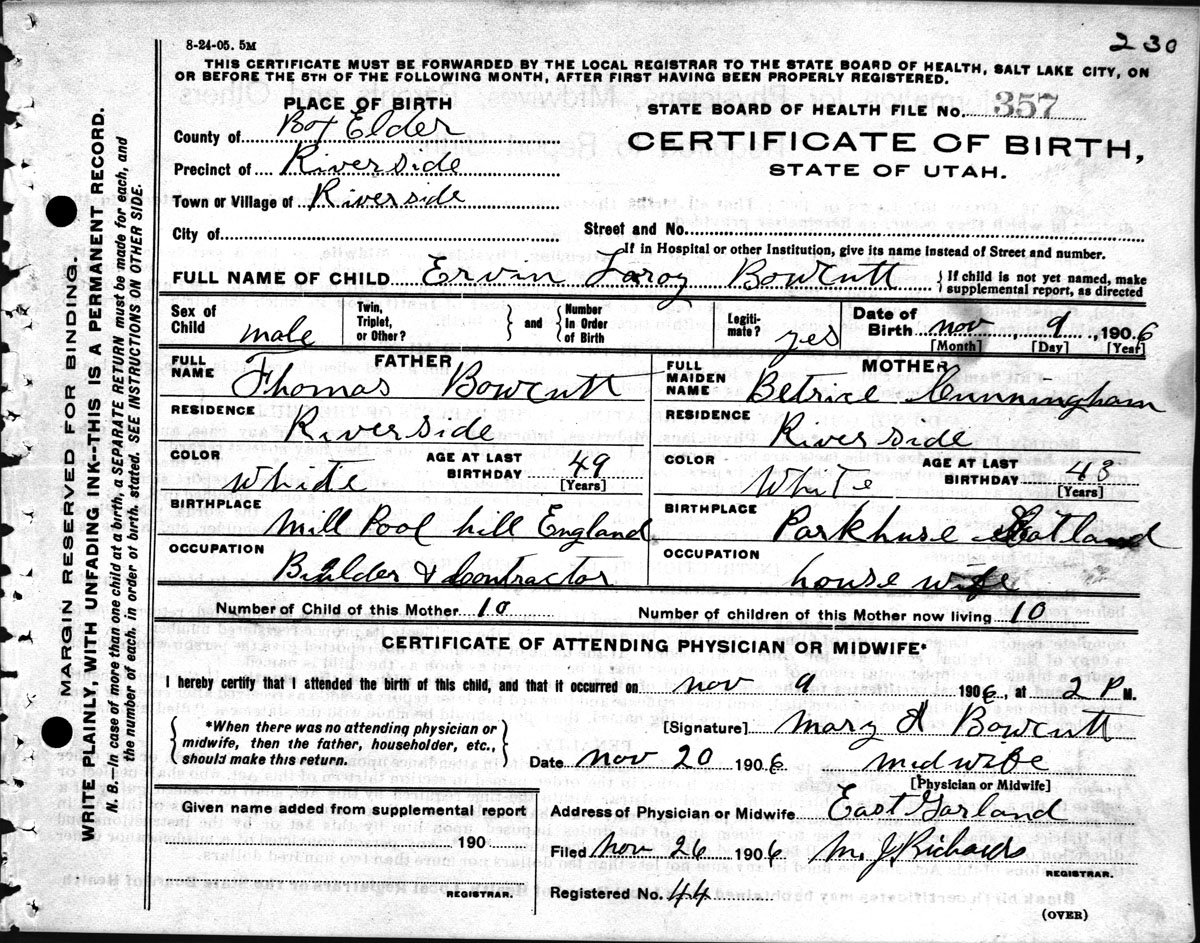 8-24-05. 5M
230
THIS CERTIFICATE MUST BE FORWARDED BY THE LOCAL REGISTRAR TO THE STATE BOARD OF HEALTH, SALT LAKE CITY, ON
OR BEFORE THE 5TH OF THE FOLLOWING MONTH, AFTER FIRST HAVING BEEN PROPERLY REGISTERED.
PLACE OF BIRTH
STATE BOARD OF HEALTH FILE No. 357
County of Box Elder
CERTIFICATE OF BIRTH,
STATE OF UTAH.
Precinct of Riverside
Town or Village of Riverside
City of
Street and No.
If in Hospital or other Institution, give its name instead of Street and number.
FULL NAME OF CHILD Ervin Laroy Bowcutt
{ If child is not yet named, make
supplemental report, as directed
Sex of Child male
Twin, Triplet, or Other?
} and {
Number In Order of Birth
Legiti- mate? yes
Date of Birth nov 9, 1906
[Month] [Day] [Year]
FATHER
FULL NAME Thomas Bowcutt
MOTHER
FULL MAIDEN NAME Betrice Cunningham
RESIDENCE Riverside
RESIDENCE Riverside
COLOR White
AGE AT LAST BIRTHDAY 49
[Years]
COLOR White
AGE AT LAST BIRTHDAY 43
[Years]
BIRTHPLACE Mill Pool hill England
BIRTHPLACE Parkhuse Scotland
OCCUPATION Builder & Contractor
OCCUPATION house wife
Number of Child of this Mother 10
Number of children of this Mother now living 10
CERTIFICATE OF ATTENDING PHYSICIAN OR MIDWIFE*
I hereby certify that I attended the birth of this child, and that it occurred on nov 9 1906, at 2 P M.
{ *When there was no attending physician or
midwife, then the father, householder, etc.,
should make this return. }
[Signature] Mary A Bowcutt
Date nov 20 1906
midwife
[Physician or Midwife]
Given name added from supplemental report
190
REGISTRAR.
Address of Physician or Midwife East Garland
Filed nov 26 1906 M. J Richards
REGISTRAR.
Registered No. 44
(OVER)
MARGIN RESERVED FOR BINDING.
WRITE PLAINLY, WITH UNFADING INK--THIS IS A PERMANENT RECORD.
N. B. In case of more than one child at a birth, a SEPARATE RETURN must be made for each, and
the number of each, in order of birth, stated. SEE INSTRUCTIONS ON OTHER SIDE.